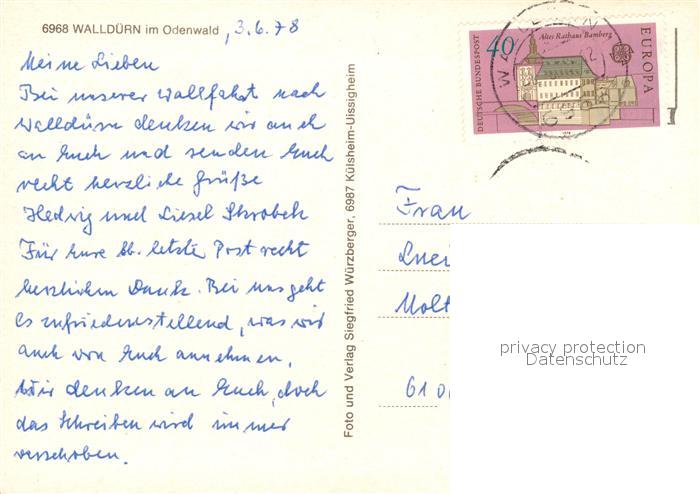 6968 WALLDÜRN im Odenwald , 3.6.78
Meine Lieben
Bei unserer Wallfahrt nach
Walldürn denken wir auch
an Euch und senden Euch
recht herzliche Grüße
Hedwig und Liesel Skrobek
Für Eure lb. letzte Post recht
herzlichen Dank. Bei uns geht
es zufriedenstellend, was wir
auch von Euch annehmen.
Wir denken an Euch, doch
das Schreiben wird immer
verschoben.
Foto und Verlag Siegfried Würzberger, 6987 Külsheim-Uissigheim
DEUTSCHE BUNDESPOST
40
Altes Rathaus Bamberg
EUROPA
1978
Frau
Luci
Molt
610
privacy protection
Datenschutz